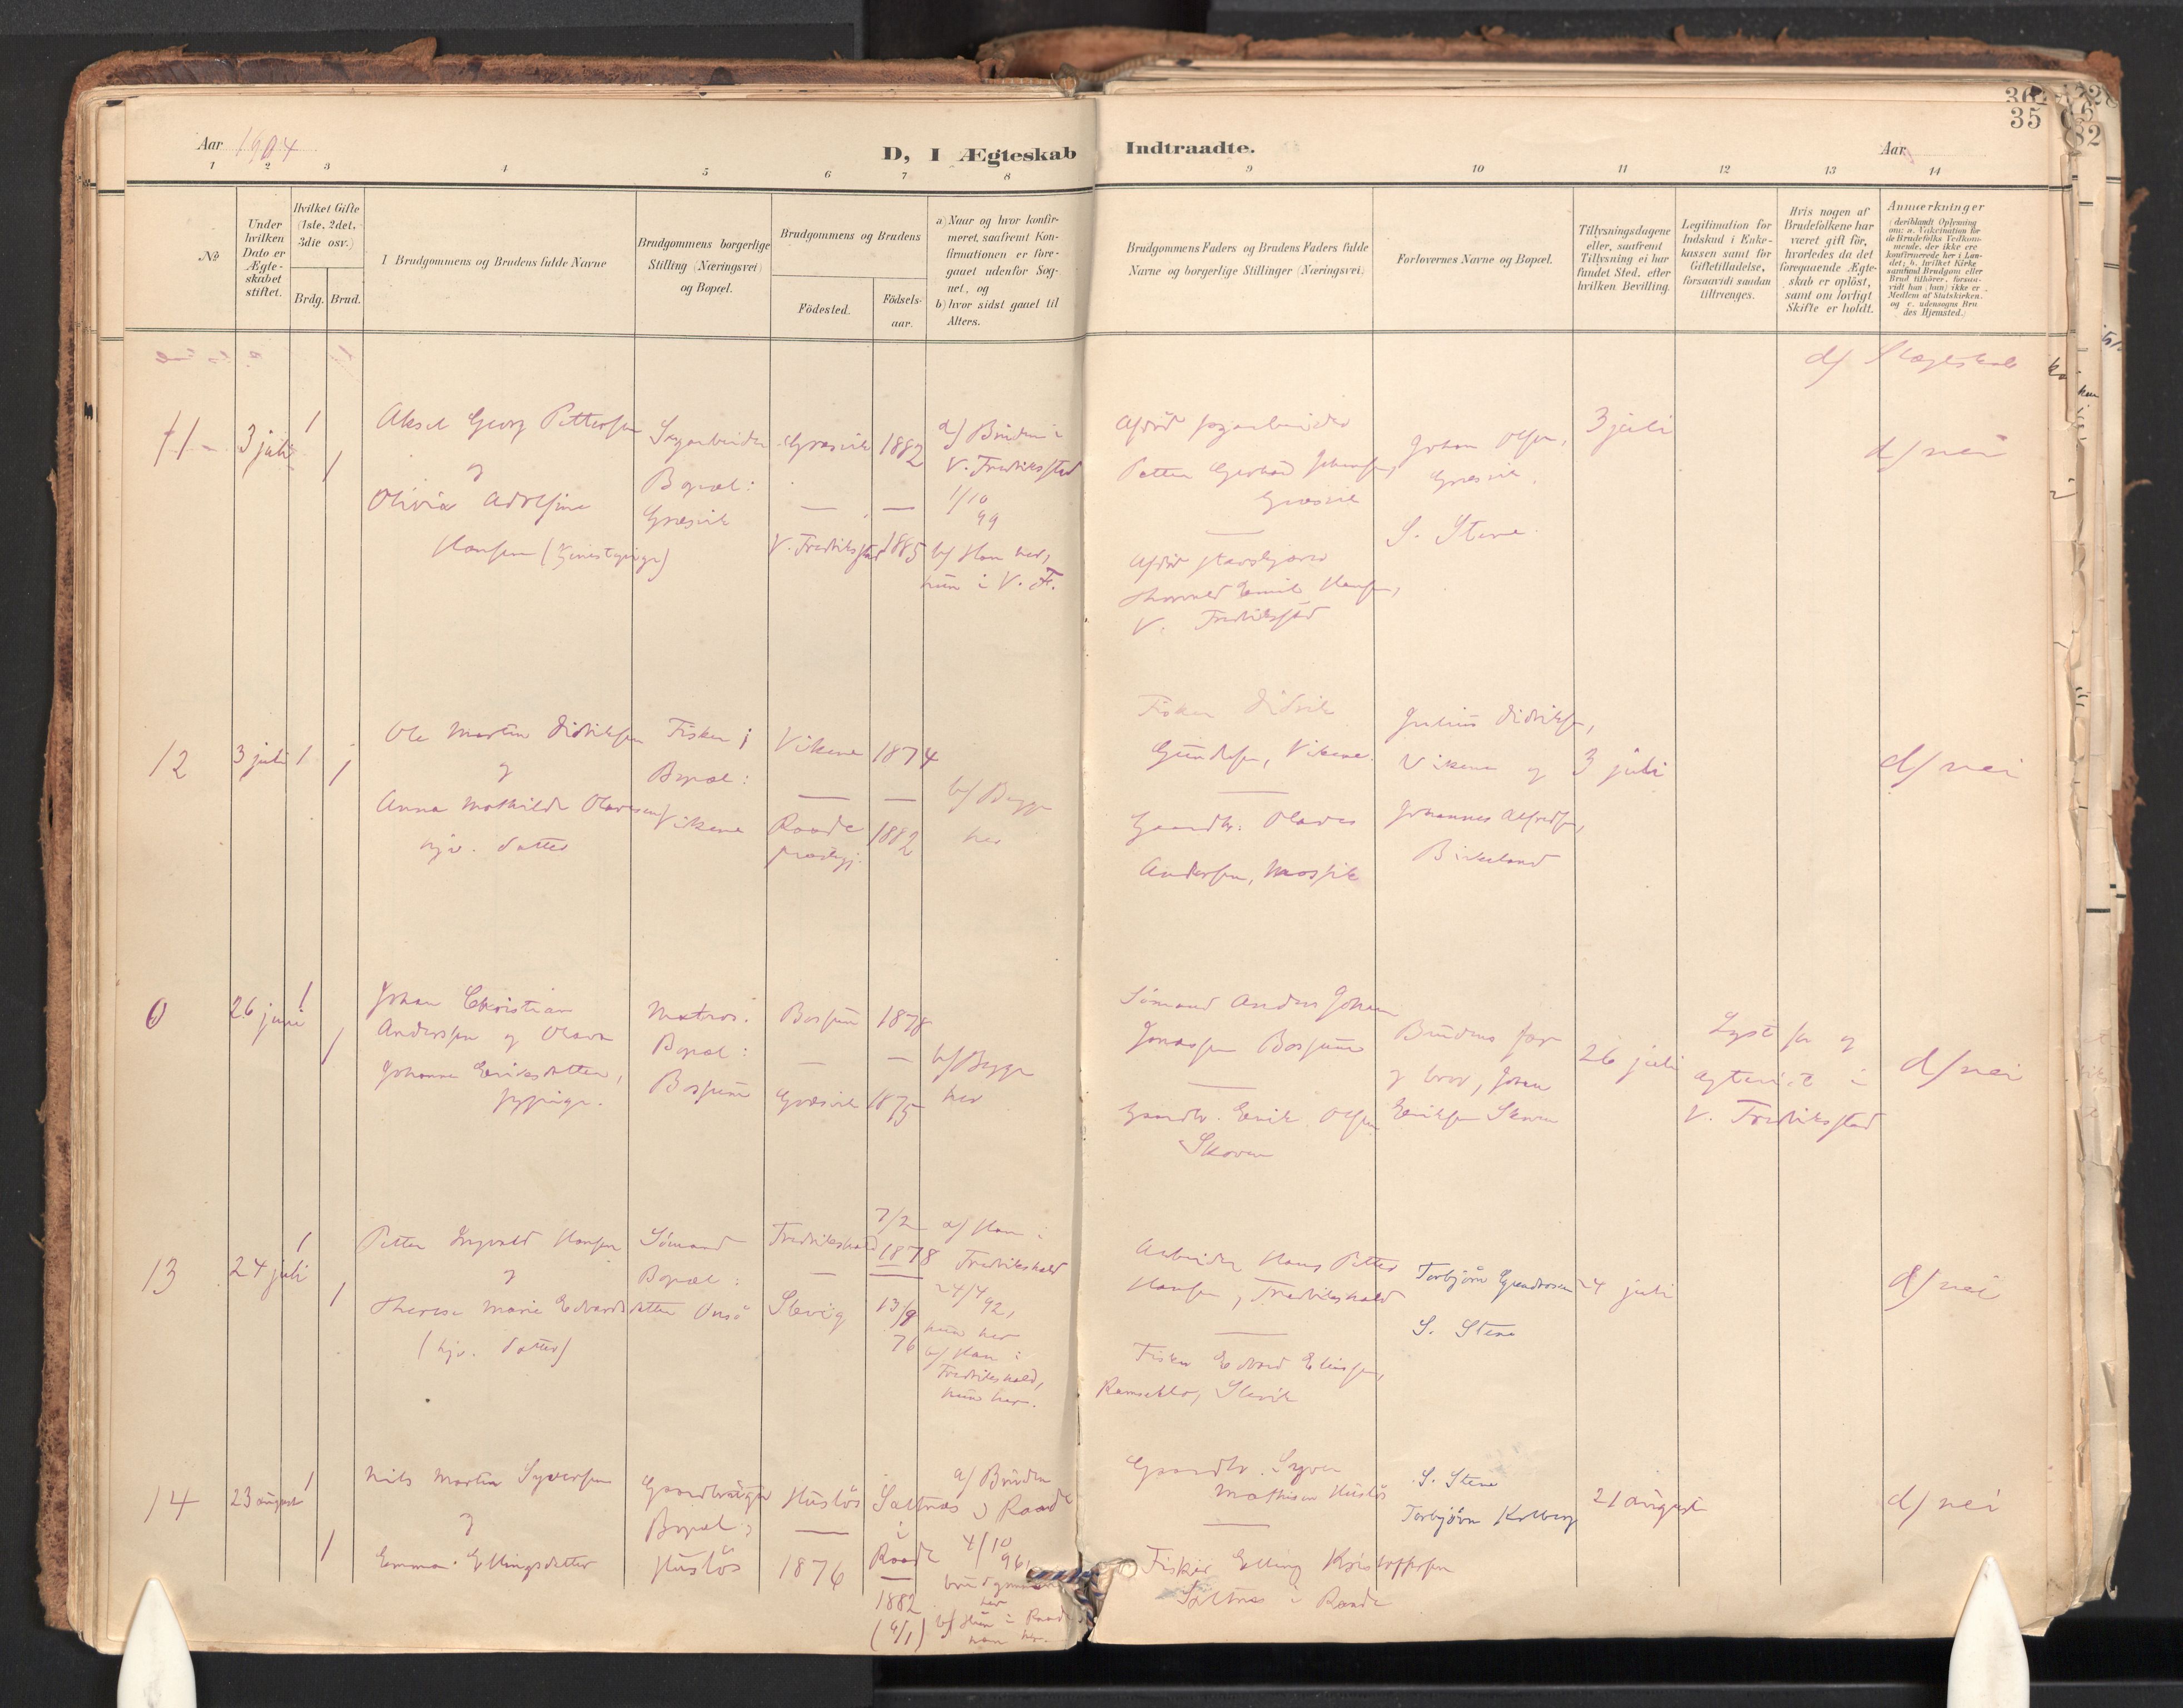 Aar 1904
D, I Ægteskab Indtraadte.
Aar
36
35
1 2 3 4 5 6 7 8 9 10 11 12 13 14
No
Under hvilken Dato er Ægte-skabet stiftet.
Hvilket Gifte (1ste, 2det, 3die osv.)
Brdg. Brud.
1 Brudgommens og Brudens fulde Navne
Brudgommens borgerlige Stilling (Næringsvei) og Bopæl.
Brudgommens og Brudens
Fødested.
Fødsels-aar.
a) Naar og hvor konfir-meret, saafremt Kon-firmationen er fore-gaaet udenfor Sog-net, og
b) hvor sidst gaaet til Alters.
Brudgommens Faders og Brudens Faders fulde Navne og borgerlige Stillinger (Næringsvei)
Forlovernes Navne og Bopæl.
Tillysningsdagene eller, saafremt Tillysning ei har fundet Sted, efter hvilken Bevilling.
Legitimation for Indskud i Enke-kassen samt for Giftetilladelse, forsaavidt saadan tiltrænges.
Hvis nogen af Brudefolkene har været gift før, hvorledes da det foregaaende Ægte-skab er opløst, samt om lovligt Skifte er holdt.
Anmærkninger (deriblandt Oplysning om: a. Vakcination for de Brudefolks Vedkom-mende, der ikke ere konfirmerede her i Lan-det; b. hvilket Kirke-samfund Brudgom eller Brud tilhører, forsaa-vidt han (hun) ikke er Medlem af Statskirken. og c. udensogns Bru-des Hjemsted.)
d/ Slægtskab
11 - 3 juli 1 1
Aksel Georg Pettersen
og
Olivia Adolfine
Hansen (tjenestepige)
Sagarbeider
Bopæl:
Græsvik
Græsvik 1882
V. Fredriksstad 1885
a/ Bruden i
V. Fredriksstad
1/10
99
b/ Han her,
hun i V. F.
Afdød sagarbeider
Petter Gerhard Johansen,
Græsvik
Afdød
Thorvald Emil Hansen,
V. Fredriksstad
Johan Olsen,
Græsvik.
S. Stene.
3 juli
d/ nei
12 3 juli 1 1
Ole Martin Didriksen
og
Anna Mathilde Olavesen
hjv. datter
Fisker;
Bopæl:
Vikene
Vikene 1874
Raade
præstegj. 1882
b/ Begge
her
Fisker Didrik
Gundersen, Vikene.
Gaardbr. Olaves
Andersen, Mossik
Julius Didriksen,
Vikene og
Johannes Alfredsen,
Birkeland
3 juli
d/ nei
0 26 juni 1 1
Johan Christian
Anderssen og Olava
Johanne Eriksdatter,
sypige.
Matros.
Bopæl:
Bossum
Bossum 1878
Græsvik 1875
b/ Begge
her
Sømand Anders Johan
Jonassen Bossum
Gaardbr. Erik Olsen
Skoven
Brudens far
og bror, Johan
Eriksen Skoven
26 juli
Lyst for og
ægteviet i
V. Fredriksstad
d/ nei
13 24 juli 1 1
Petter Ingvald Hansen
og
Therese Marie Edvardsdatter Onsø
(hjv. datter)
Sømand
Bopæl:
Fredrikshald 7/2 1878
Slevig 13/9 76
a/ Han i
Fredrikshald
24/4 92,
hun her
b/ Han i
Fredrikshald,
hun her.
Arbeider Hans Petter
Hansen, Fredrikshald
Fisker Edvard Eliassen,
Ramseklov, Slevik
Torbjørn Gundrosen
S. Stene
24 juli
d/ nei
14 23 august 1 1
Nils Martin Syversen
og
Emma Ellingsdatter
Gaardbruger
Bopæl;
Husløs
Husløs
1876
Saltnæs
i
Raade
1882
(9/1)
a/ Bruden
i Raade
4/10
96,
brudgommen
her
b/ Hun i Raade
han her.
Gaardbr. Syver
Mathisen Husløs
Fisker Elling Kristoffersen
Saltnæs i Raade
S. Stene
Torbjørn Kolberg
21 august
d/ nei